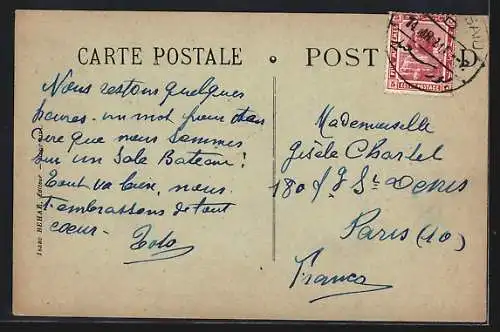 CARTE POSTALE
POST
D
Nous restons quelques
heures. un mot pour
Dire que nous sommes
sur un Sale Bateau!
Tout va bien, nous
t'embrassons de tout
coeur - Toto
Mademoiselle
Gisèle Charlet
180 f g St Denis
Paris (10)
France
ISAAC BEHAR, Editeur